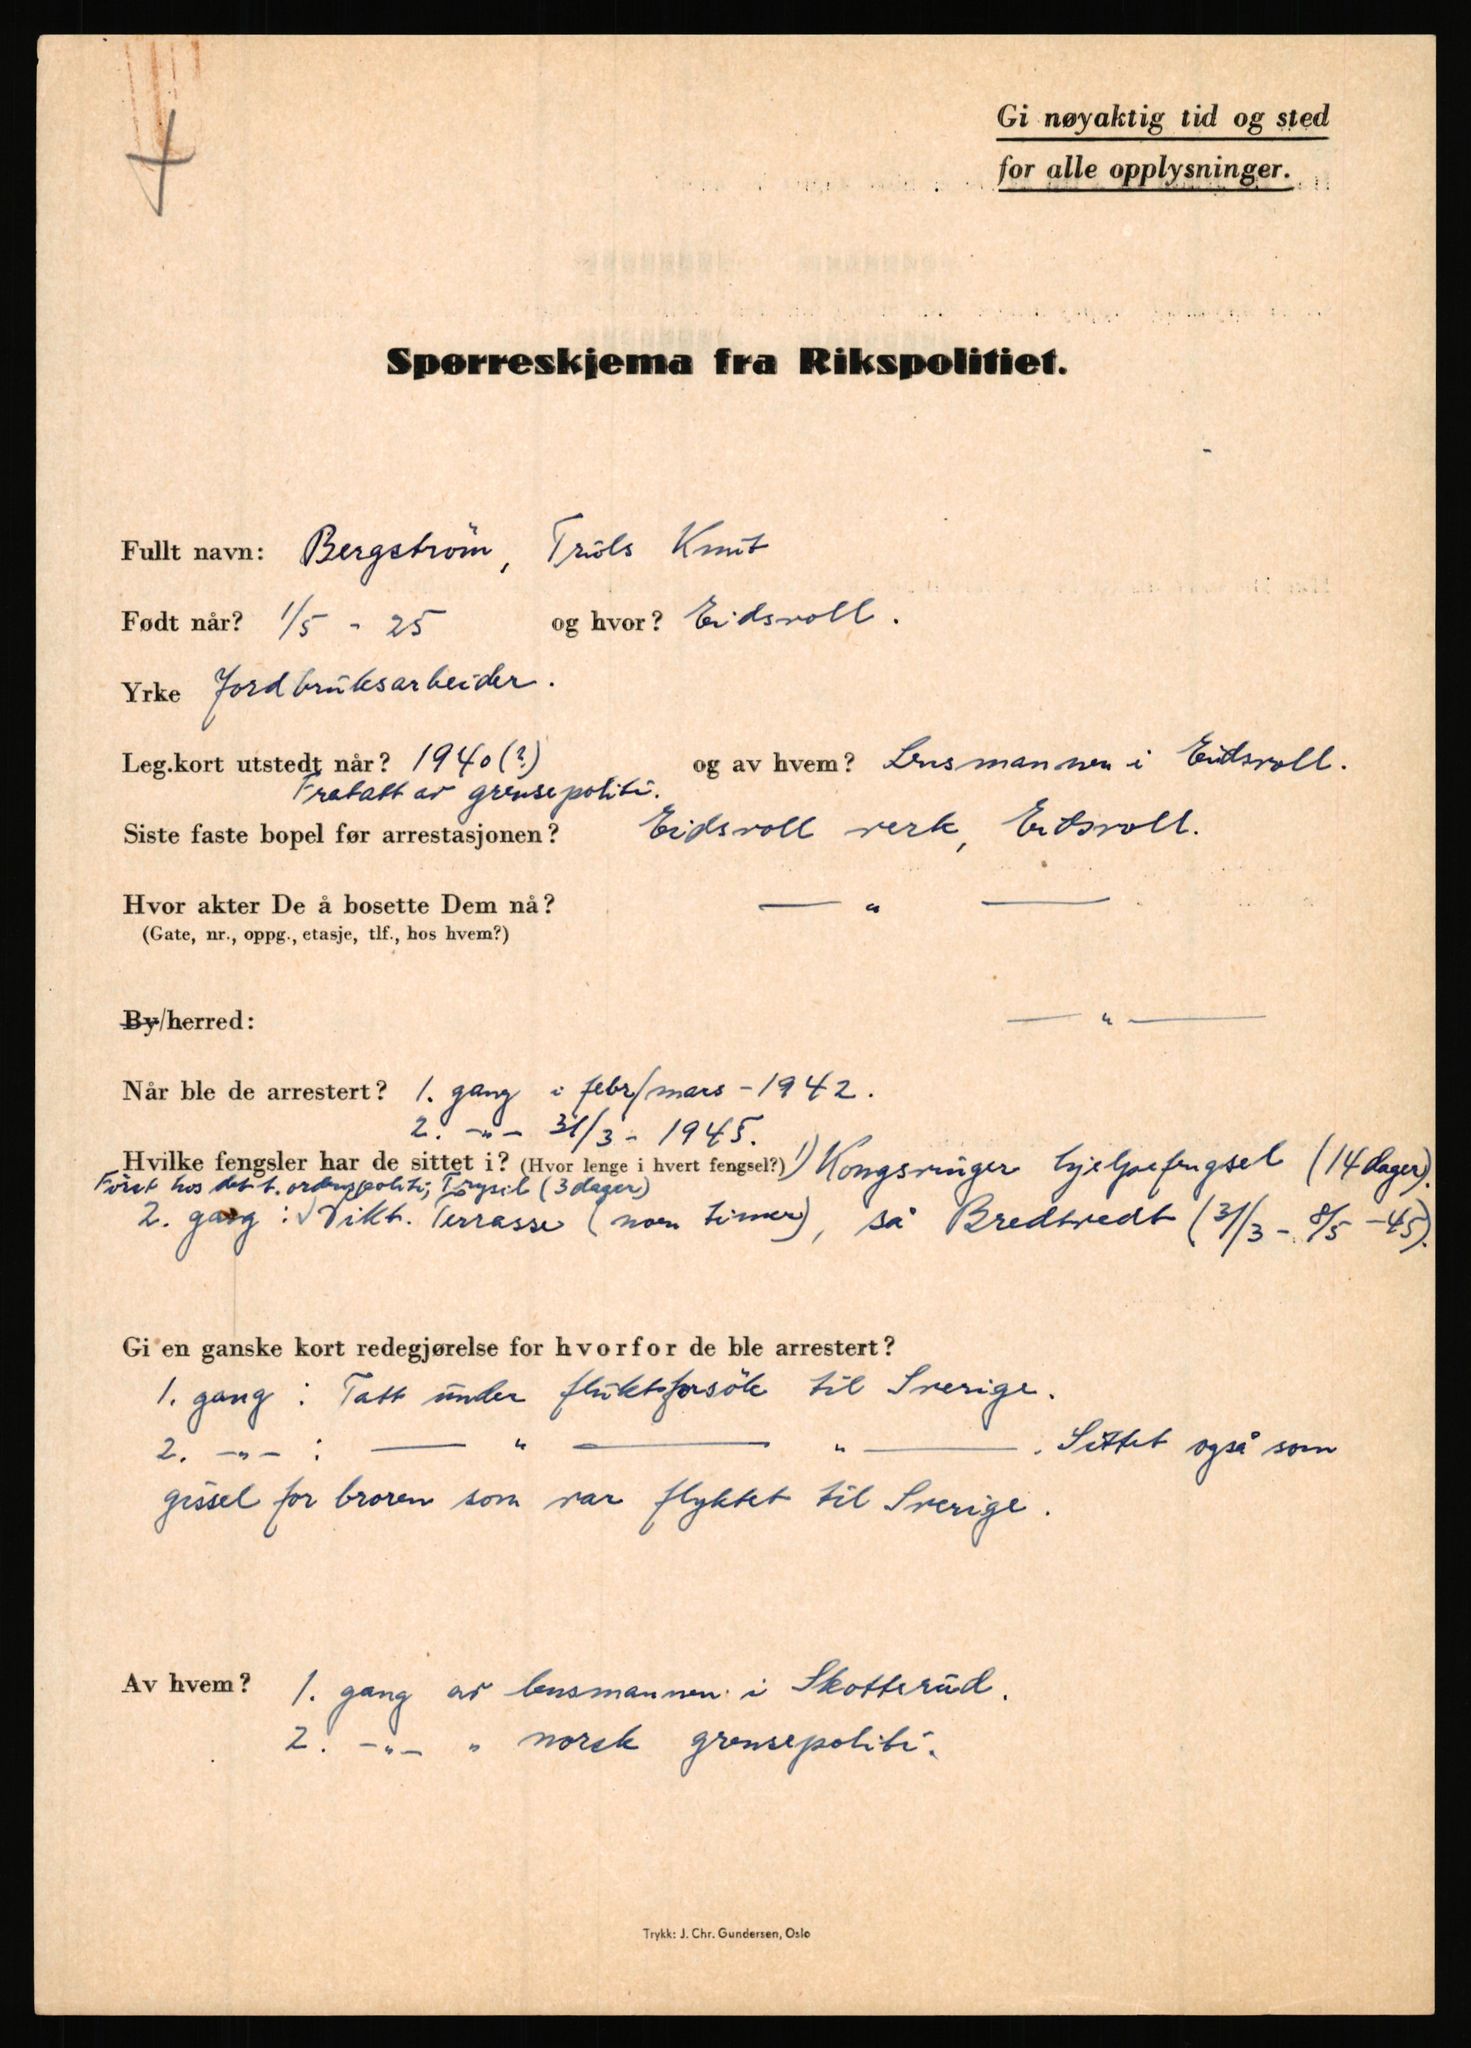 Gi nøyaktig tid og sted
for alle opplysninger.
Spørreskjema fra Rikspolitiet.
Fullt navn: Bergström, Truls Knut
Født når? 1/5 - 25 og hvor? Eidsvoll.
Yrke Jordbruksarbeider.
Leg.kort utstedt når? 1940(?) og av hvem? Lensmannen i Eidsvoll.
Fratatt av grensepoliti.
Siste faste bopel før arrestasjonen? Eidsvoll verk, Eidsvoll.
Hvor akter De å bosette Dem nå? — " —
(Gate, nr., oppg., etasje, tlf., hos hvem?)
By/herred: — " —
Når ble de arrestert? 1. gang i febr/mars - 1942.
2. -"- 31/3 - 1945.
Hvilke fengsler har de sittet i? (Hvor lenge i hvert fengsel?) 1) Kongsvinger hjelpefengsel (14 dager).
Först hos det t. ordenspoliti, Trysil (3 dager)
2. gang : Vikt. Terrasse (noen timer), så Bredtvedt (31/3 - 8/5 - 45).
Gi en ganske kort redegjørelse for hvorfor de ble arrestert?
1. gang : Tatt under fluktforsök til Sverige.
2. -"- : — " — " — . Sittet også som
gissel for broren som var flyktet til Sverige.
Av hvem? 1. gang av lensmannen i Skotterud.
2. -"- " norsk grensepoliti.
Trykk: J. Chr. Gundersen, Oslo